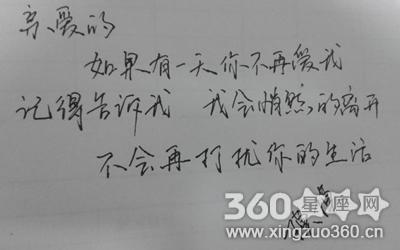 亲爱的
如果有一天你不再爱我
记得告诉我 我会悄然的离开
不会再打扰你的生活
360星座网
www.xingzuo360.cn